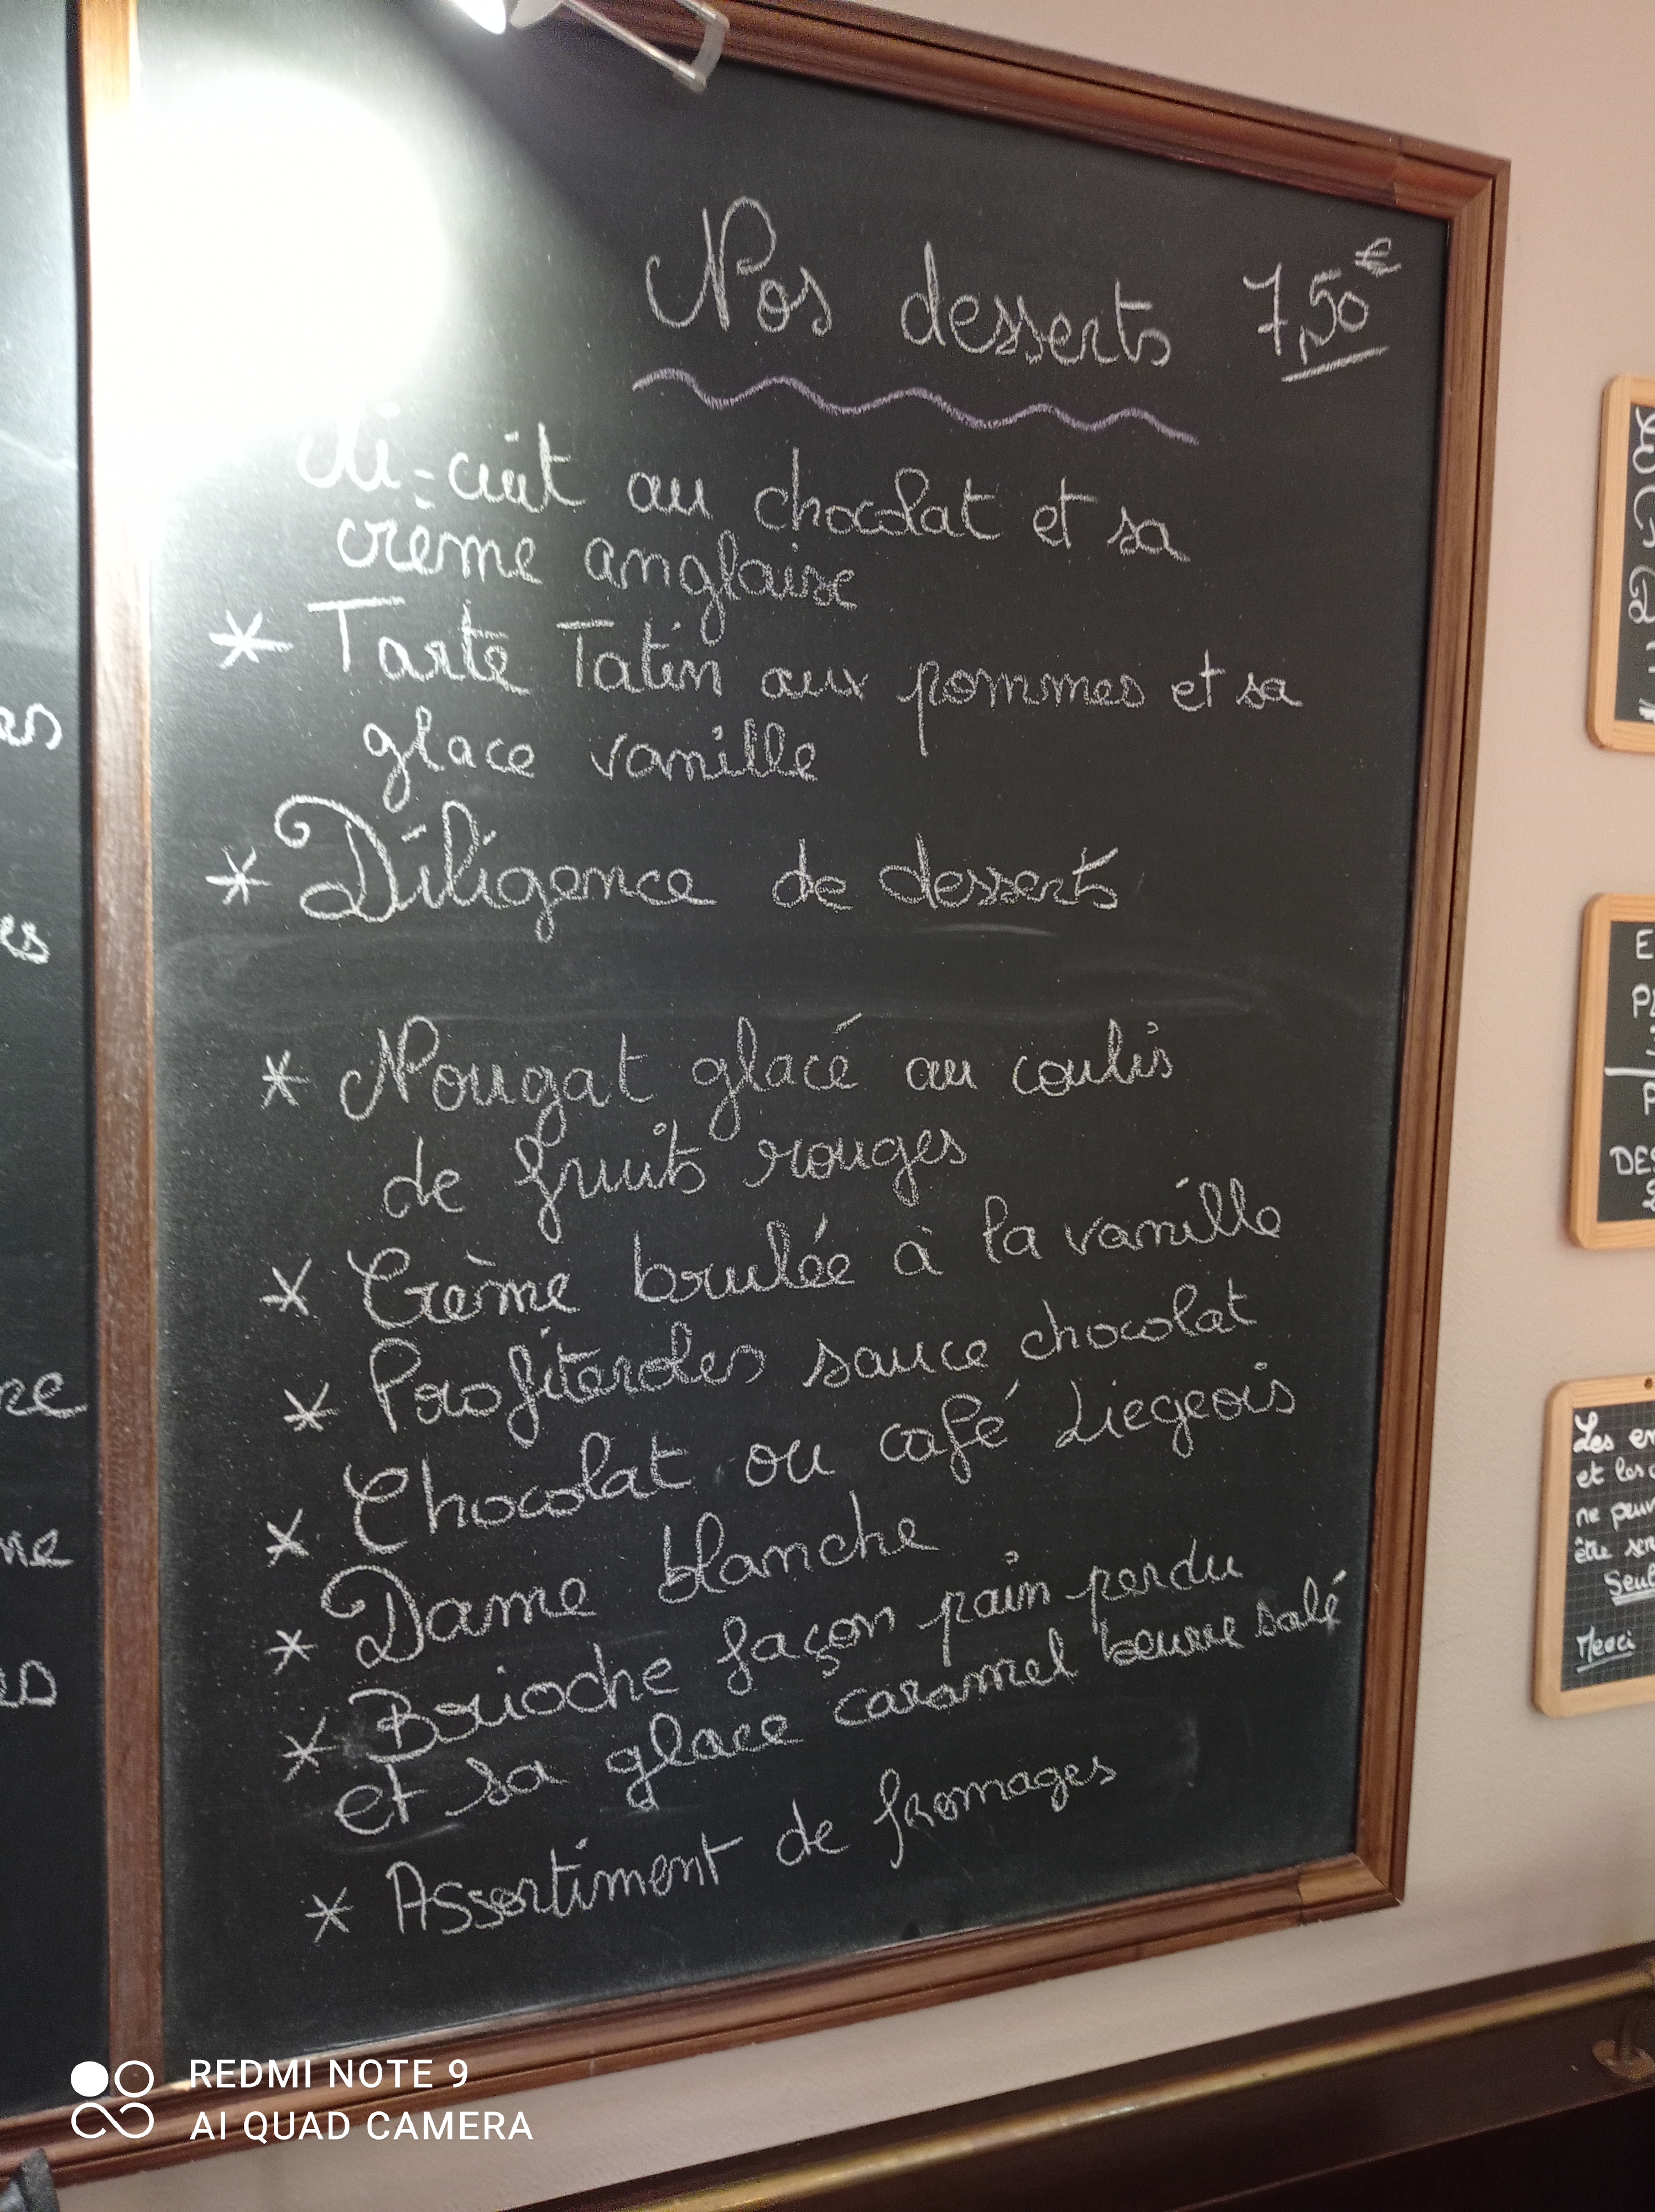 Nos desserts 7,50€
Mi-cuit au chocolat et sa
crème anglaise
* Tarte Tatin aux pommes et sa
glace vanille
* Diligence de desserts
* Nougat glacé au coulis
de fruits rouges
* Crème brulée à la vanille
* Profiteroles sauce chocolat
* Chocolat ou café Liegeois
* Dame blanche
* Brioche façon pain perdu
et sa glace caramel beurre salé
* Assortiment de fromages
es
es
re
ne
es
E
P
DES
Les en
et les
ne peuv
être ser
Seul
Merci
REDMI NOTE 9
AI QUAD CAMERA